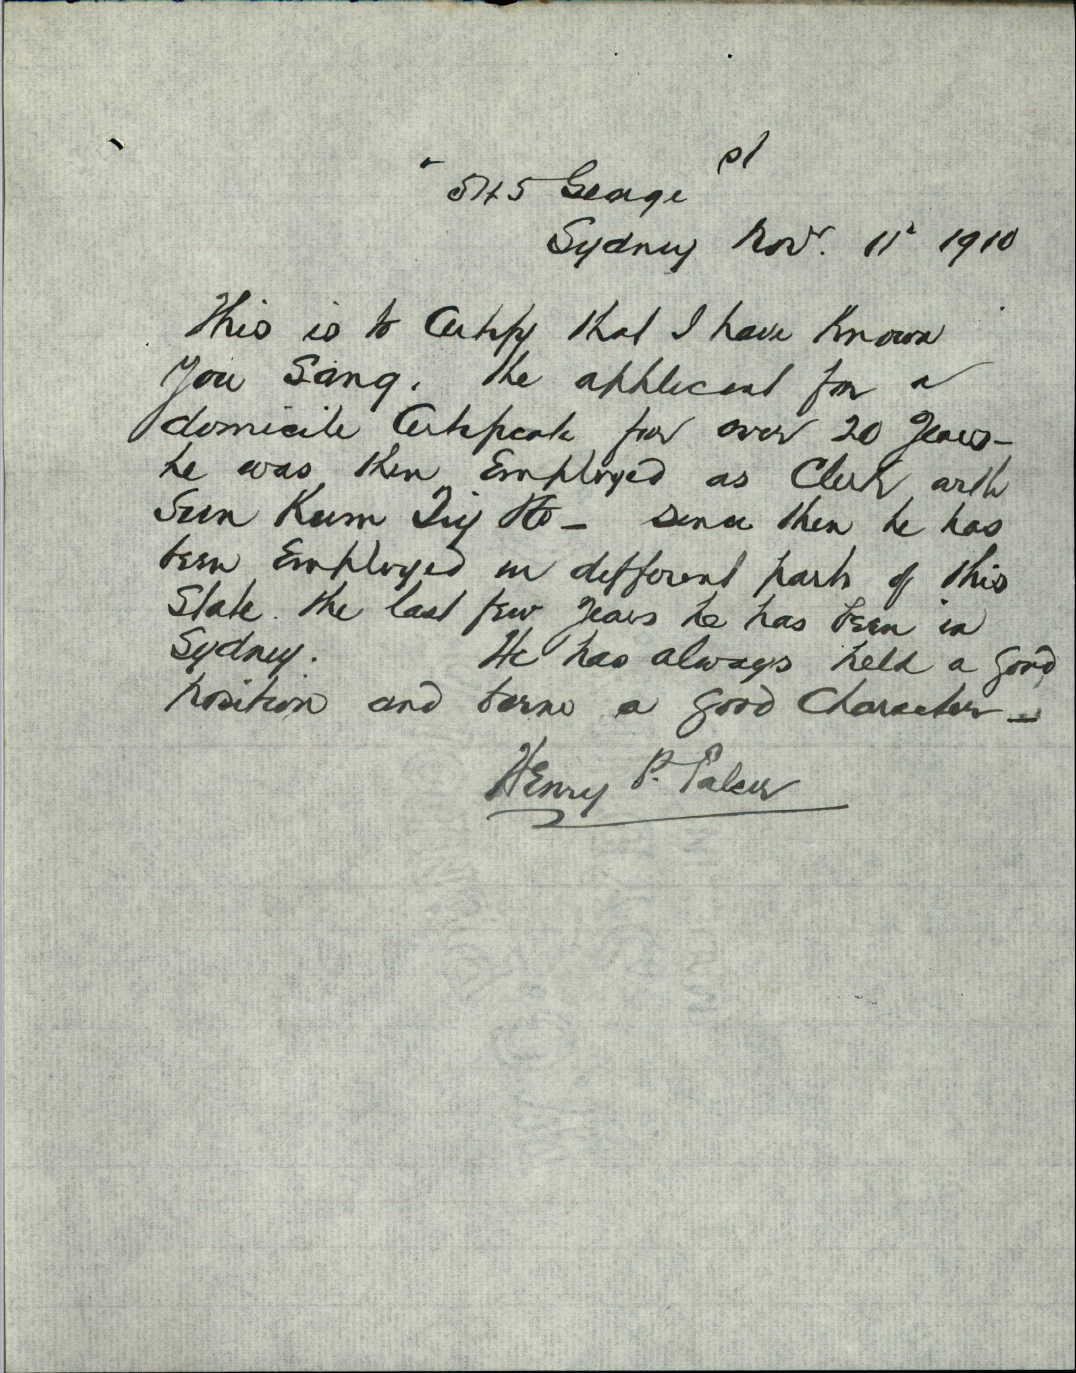 545 George St
Sydney Novr. 11th 1910
This is to Certify that I have Known
You Sang. the applicant for a
domicile Certificate for over 20 years -
he was then Employed as Clerk with
Sun Kum Tiy & Co - Since then he has
been Employed in different parts of this
State. the last few years he has been in
Sydney. He has always held a good
position and borne a good Character -
Henry P.